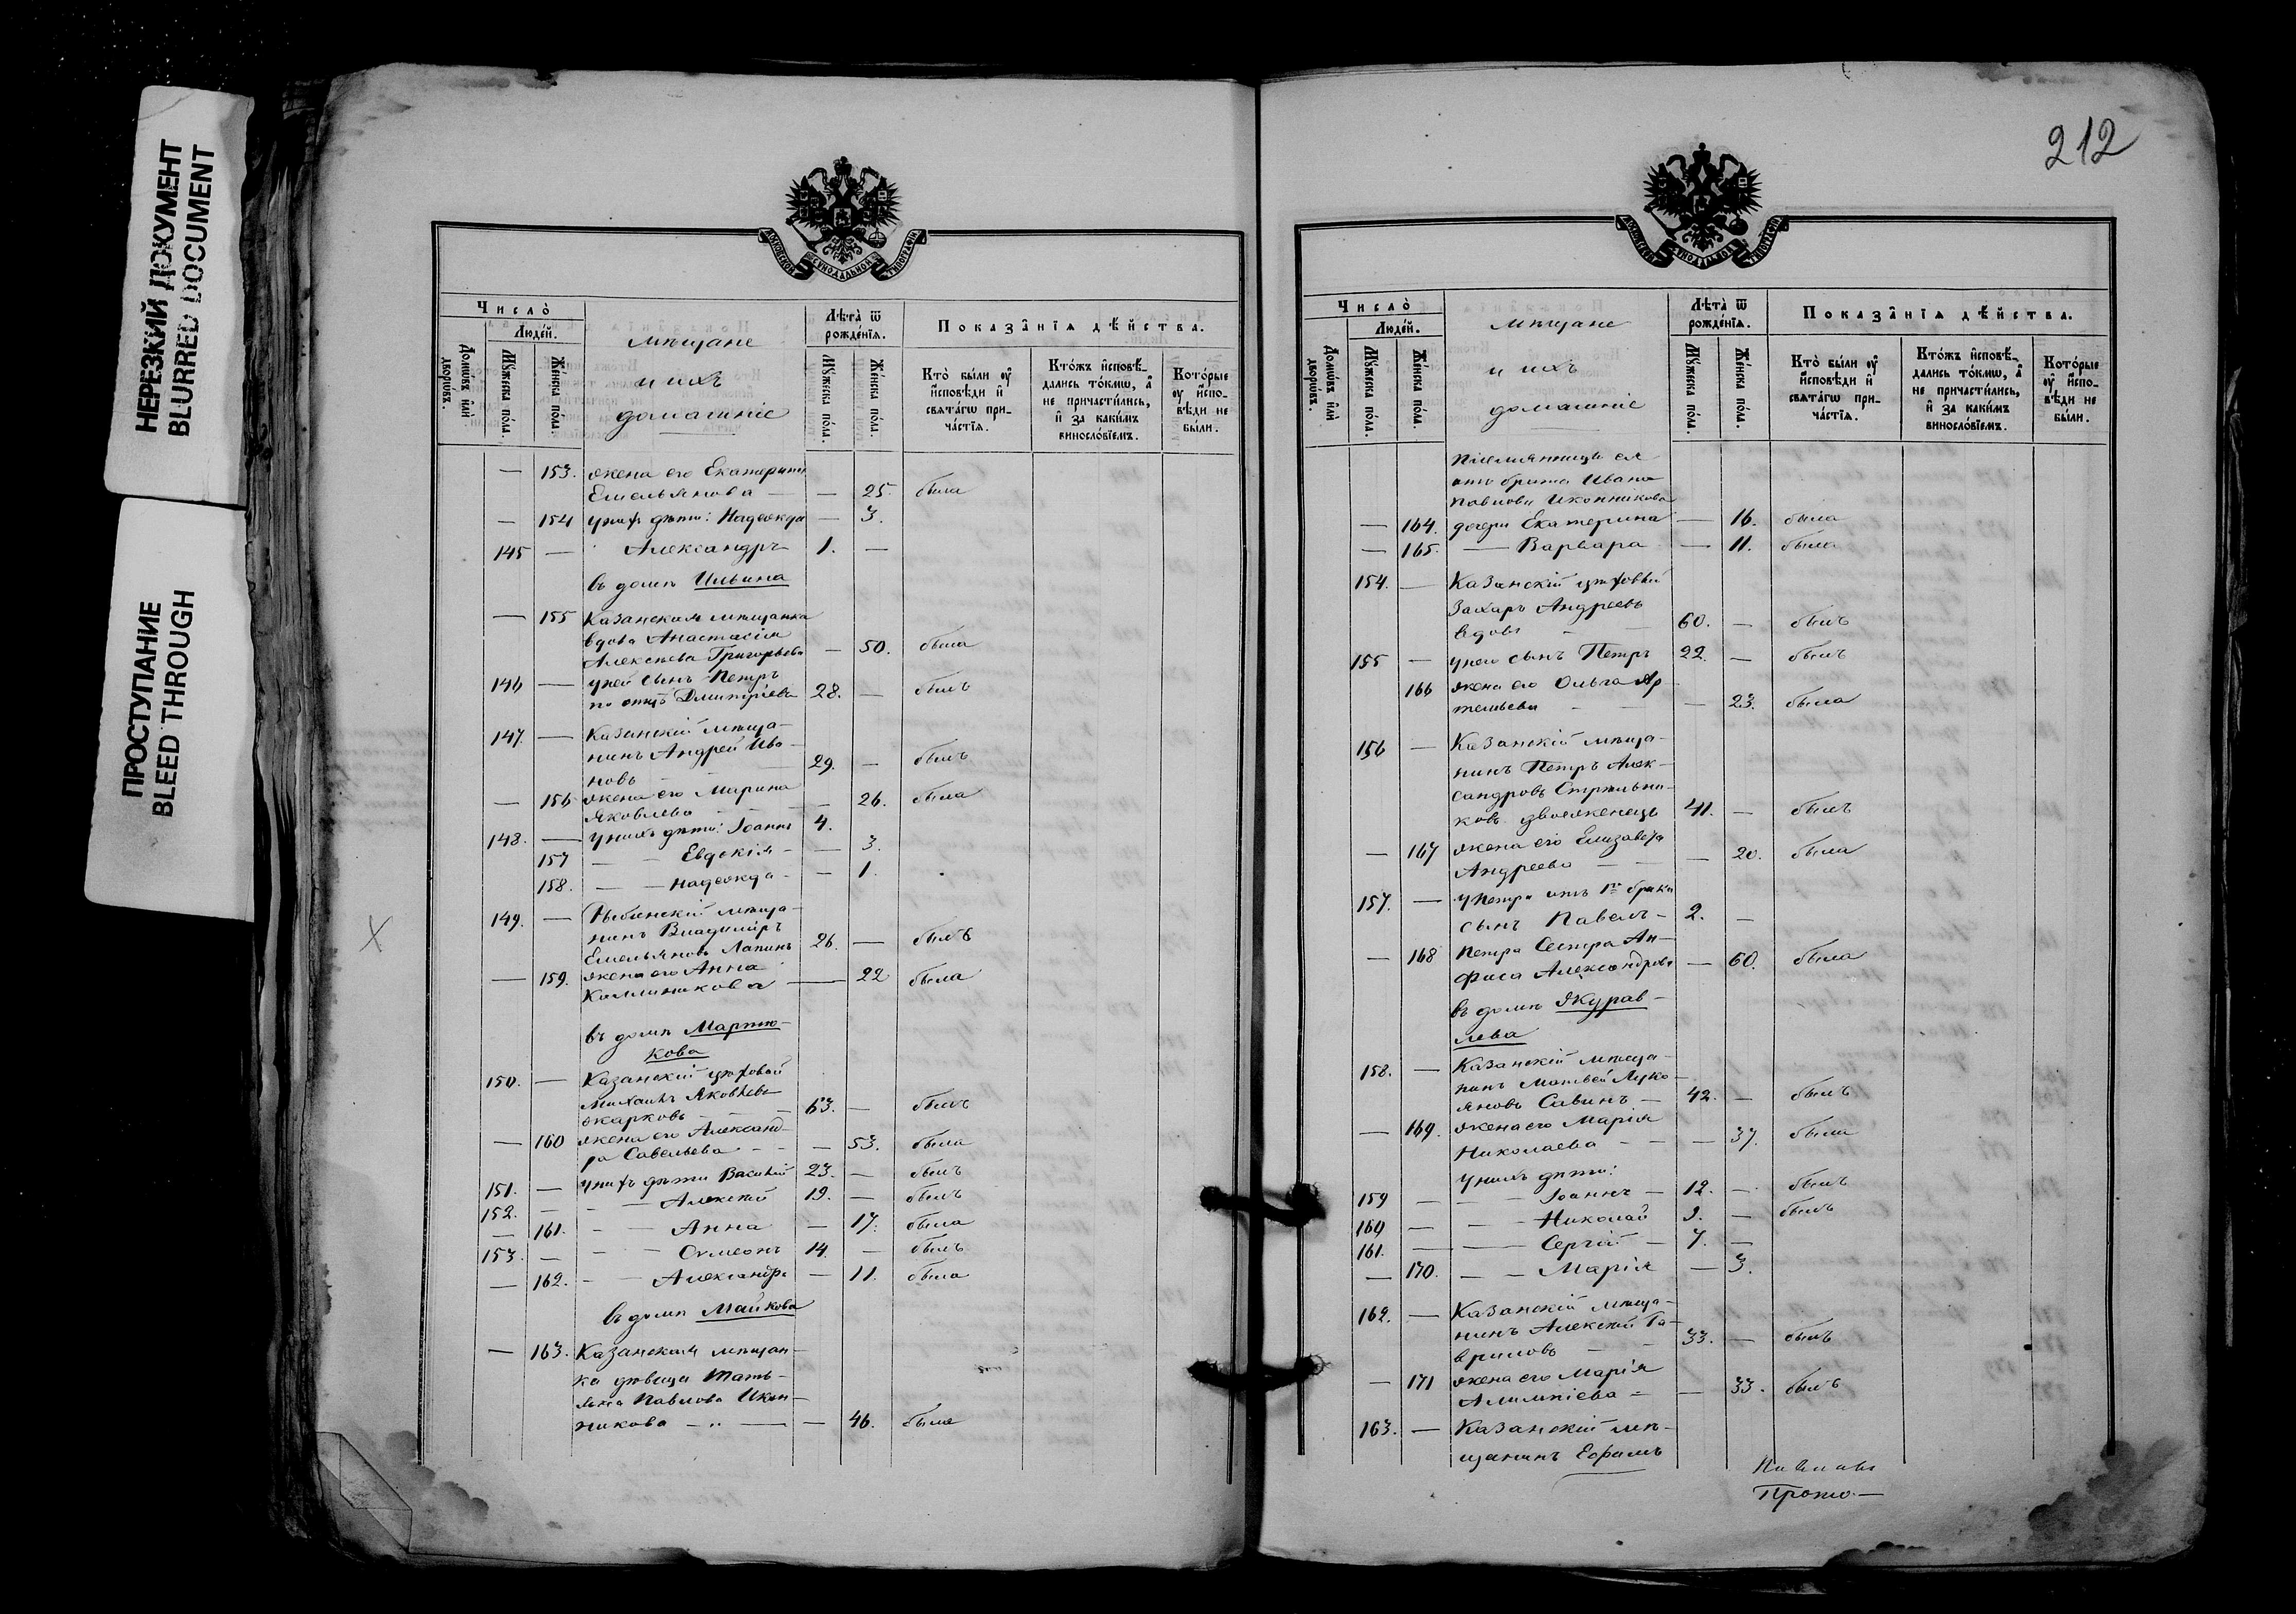 НЕРЕЗКИЙ ДОКУМЕНТ
BLURRED DOCUMENT
ПРОСТУПАНИЕ
BLEED THROUGH
Число̀
Людей.
Домѡвъ или дворѡвъ.
Мꙋжеска пола.
Женска пола.
мѣщане
и ихъ
домашніе
Лѣта ѿ рожденїѧ.
Мꙋжеска пола.
Женска пола.
Показанїѧ дѣйства.
Кто были ᲂу҆ исповѣди и свѧтагѡ причастїѧ.
Ктожъ исповѣдались токмѡ, а не причастились, и за какимъ винословїемъ.
Которые ᲂу҆ исповѣди не были.
— 153. жена его Екатерина
Емельянова — — 25. была
— 154 у нихъ дѣти: Надежда — 3.
145 — Александръ 1. —
въ домѣ Ильина
— 155 Казанская мѣщанка
вдова Анастасія
Алексѣева Григорьева — 50. была
146 — у ней сынъ Петръ
по отцѣ Дмитріевъ 28. — былъ
147. — Казанскій мѣща-
нинъ Андрей Ива-
новъ — 29. — былъ
— 156 жена его Марина
Яковлева — — 26. была
148. — у нихъ дѣти: Іоаннъ 4.
157 — — Евдокія — — 3.
158. — — Надежда — — 1.
149. — Рыбинскій мѣща-
нинъ Владиміръ
Емельяновъ Лапинъ 26. — былъ
— 159. жена его Анна
Каллиникова — 22 была
въ домѣ Мартю-
кова
150. — Казанскій цѣховой
Михаилъ Яковлевъ
Жарковъ — — 63. — былъ
— 160 жена его Александ-
ра Савельева — — — 53. была
151. — у нихъ дѣти Василій 23. — былъ
152. — — Алексѣй 19. — былъ
— 161. — — Анна — 17. была
153. — — — Сѵмеонъ 14. — былъ
— 162. — — Александра — 11. была
въ домѣ Майкова
— 163. Казанская мѣщан-
ка дѣвица Тать-
яна Павлова Икон-
никова — „ — — 46. была
212
Число̀
Людей.
Домѡвъ или дворѡвъ.
Мꙋжеска пола.
Женска пола.
мѣщане
и ихъ
домашніе
Лѣта ѿ рожденїѧ.
Мꙋжеска пола.
Женска пола.
Показанїѧ дѣйства.
Кто были ᲂу҆ исповѣди и свѧтагѡ причастїѧ.
Ктожъ исповѣдались токмѡ, а не причастились, и за какимъ винословїемъ.
Которые ᲂу҆ исповѣди не были.
племянницы ея
отъ брата Ивана
Павлова Иконникова
— 164. дочери Екатерина — 16. была
— 165. — Варвара — 11. была
154. — Казанскій цѣховый
Захаръ Андреевъ
вдовъ — — 60. — былъ
155 — у него сынъ Петръ 22. — былъ
166 жена его Ольга Ар
темьева — — — 23. была
156 — Казанскій мѣща-
нинъ Петръ Алек-
сандровъ Стрѣльни-
ковъ двоеженецъ 41. — былъ
— 167 жена его Елизавета
Андреева — — — 20. была
157. — у Петра отъ 1го брака
сынъ Павелъ — 2. —
— 168 Петра сестра Ан-
фиса Александрова — 60. была
въ домѣ Журав-
лева
158. — Казанскій мѣща-
нинъ Матвей Луко-
яновъ Савинъ — 42. — былъ
— 169. жена его Марія
Николаева — — — 37. была
у нихъ дѣти:
159 — — — Іоаннъ — 12. — былъ
160 — — — Николай 9. — былъ
161. — — Сергій — 7. —
— 170. — — Марія — 3.
162. — Казанскій мѣща-
нинъ Алексѣй Га-
вриловъ — — 33. — былъ
— 171 жена его Марія
Алимпіева — — 33. былъ
163. — Казанскій мѣ-
щанинъ Ефимъ
Прото-